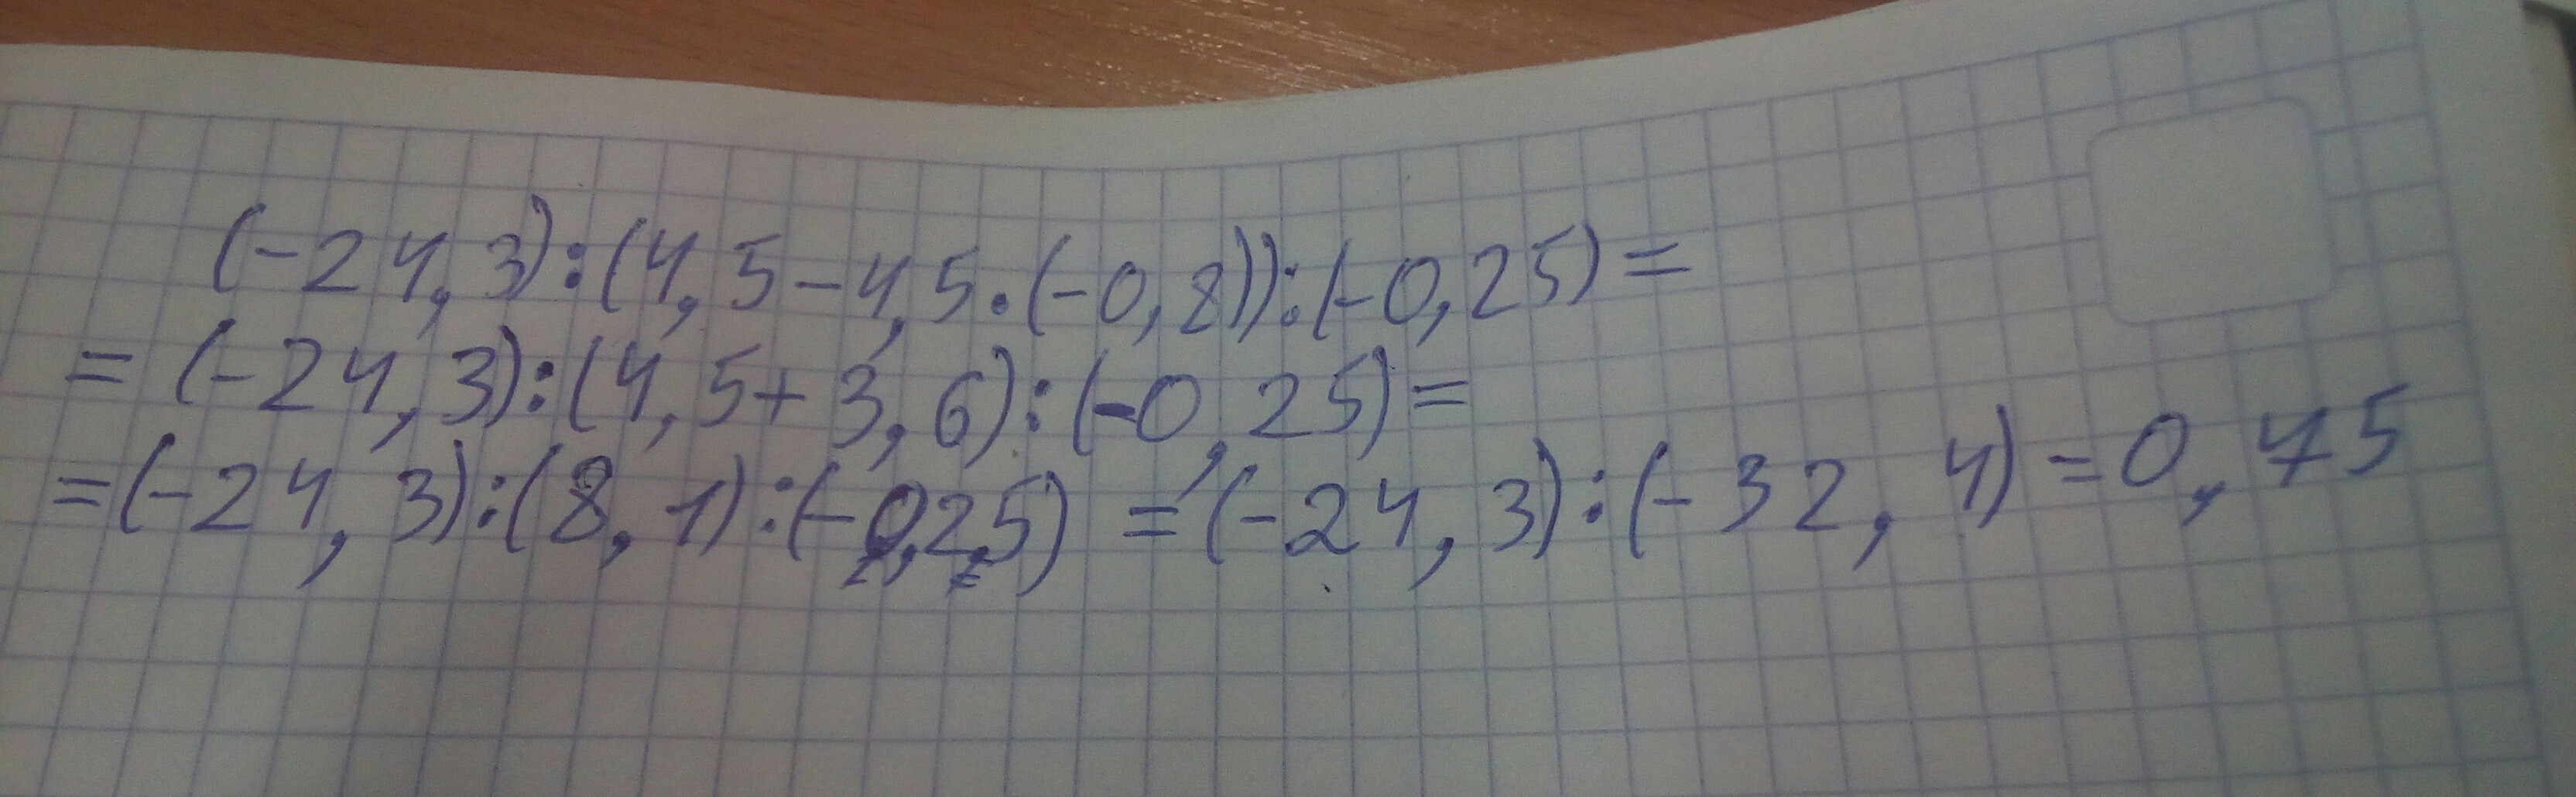 (-24,3):(4,5-4,5·(-0,8)):(-0,25)=
=(-24,3):(4,5+3,6):(-0,25)=
=(-24,3):(8,1):(-0,25)=(-24,3):(-32,4)=0,75